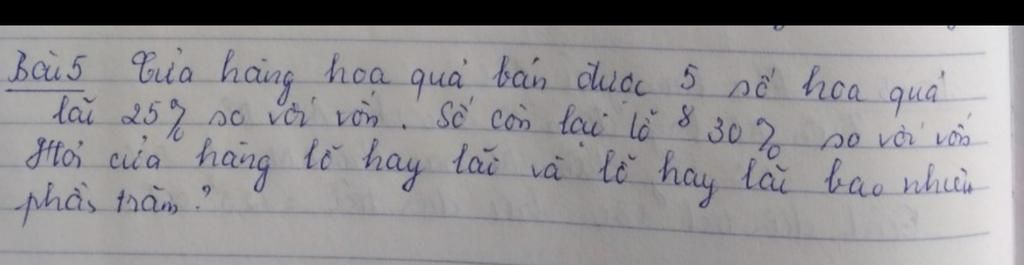 Bài 5 Cửa hàng hoa quả bán được 5 số hoa quả
lãi 25% so với vốn. Số còn lại lỗ 8 30% so với vốn
Hỏi cửa hàng lỗ hay lãi và lỗ hay lãi bao nhiêu
phần trăm?